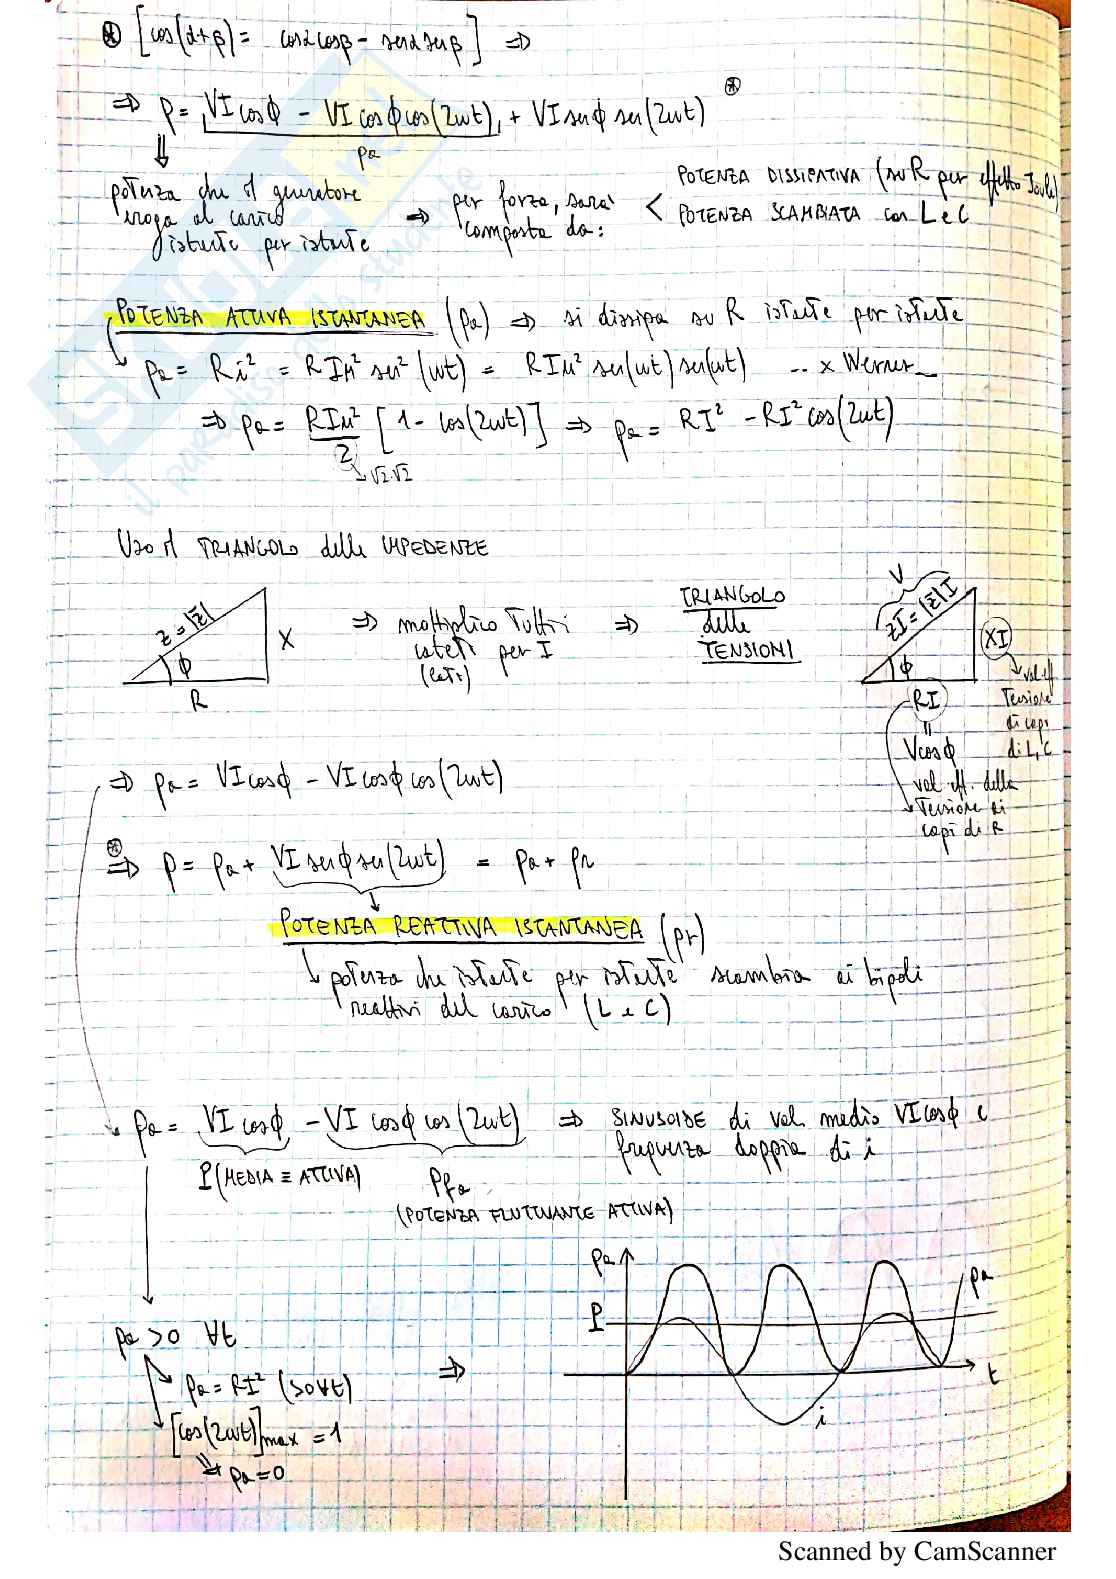 ⊛ [cos(α+β) = cosα cosβ - senα senβ] ⇒
⇒ p = VI cosϕ - VI cosϕ cos(2ωt) + VI senϕ sen(2ωt) ⊛
pa
potenza che il generatore
eroga al carico
istante per istante
⇒ per forza, sarà
composta da:
< POTENZA DISSIPATIVA (su R per effetto Joule)
POTENZA SCAMBIATA con L e C
POTENZA ATTIVA ISTANTANEA (pa) ⇒ si dissipa su R istante per istante
pa = Ri² = R I_M² sen²(ωt) = R I_M² sen(ωt) sen(ωt) .. x Werner_
⇒ pa = R I_M²/2 [1 - cos(2ωt)] ⇒ pa = RI² - RI² cos(2ωt)
√2·√2
Uso il TRIANGOLO delle IMPEDENZE
z = |z̄|
ϕ
X
R
⇒ moltiplico Tutti i
cateti per I
(lati)
⇒ TRIANGOLO
delle
TENSIONI
V
zI = |z̄|I
ϕ
XI
val. eff
Tensione
di capi
di L, C
RI
=
Vcosϕ
val. eff. della
Tensione ai
capi di R
⇒ pa = VI cosϕ - VI cosϕ cos(2ωt)
⊛ ⇒ p = pa + VI senϕ sen(2ωt) = pa + pr
POTENZA REATTIVA ISTANTANEA (pr)
potenza che istante per istante scambia ai bipoli
reattivi del carico (L e C)
pa = VI cosϕ - VI cosϕ cos(2ωt) ⇒ SINUSOIDE di val. medio VI cosϕ e
frequenza doppia di i
P (MEDIA ≡ ATTIVA)
Pfa
(POTENZA FLUTTUANTE ATTIVA)
pa
P
pa
t
i
pa > 0 ∀t
pa = RI² (>0 ∀t)
⇒
[cos(2ωt)]max = 1
⇒ pa = 0
Scanned by CamScanner